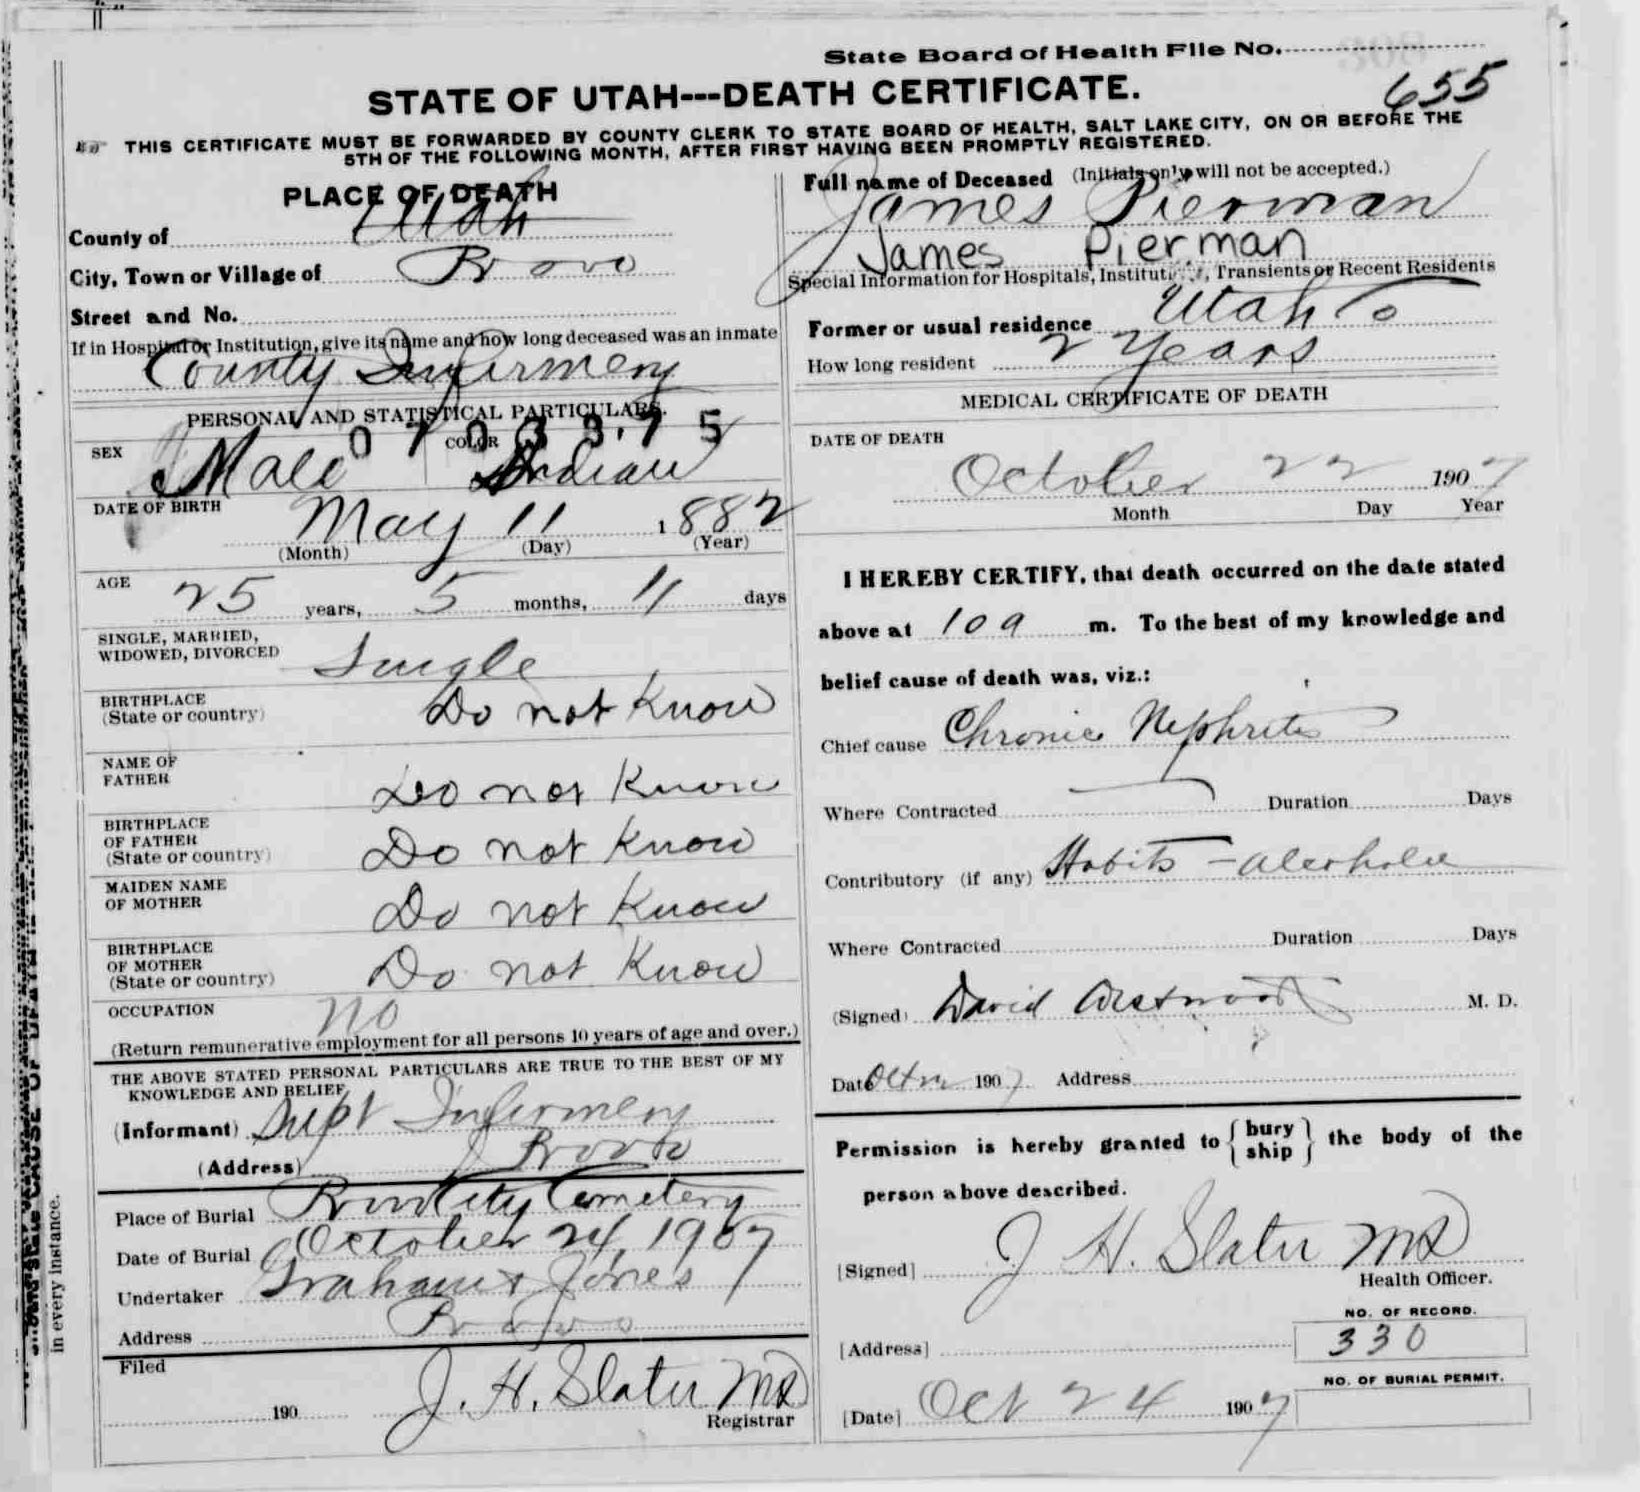 State Board of Health File No.
308
655
STATE OF UTAH---DEATH CERTIFICATE.
THIS CERTIFICATE MUST BE FORWARDED BY COUNTY CLERK TO STATE BOARD OF HEALTH, SALT LAKE CITY, ON OR BEFORE THE
5TH OF THE FOLLOWING MONTH, AFTER FIRST HAVING BEEN PROMPTLY REGISTERED.
PLACE OF DEATH
County of Utah
City, Town or Village of Provo
Street and No.
If in Hospital or Institution, give its name and how long deceased was an inmate
County Infirmery
PERSONAL AND STATISTICAL PARTICULARS.
SEX Male COLOR Indian
DATE OF BIRTH May 11 1882
(Month) (Day) (Year)
AGE 25 years, 5 months, 11 days
SINGLE, MARRIED,
WIDOWED, DIVORCED Single
BIRTHPLACE
(State or country) Do not Know
NAME OF
FATHER Do not Know
BIRTHPLACE
OF FATHER
(State or country) Do not Know
MAIDEN NAME
OF MOTHER Do not Know
BIRTHPLACE
OF MOTHER
(State or country) Do not Know
OCCUPATION no
(Return remunerative employment for all persons 10 years of age and over.)
THE ABOVE STATED PERSONAL PARTICULARS ARE TRUE TO THE BEST OF MY
KNOWLEDGE AND BELIEF
(Informant) Supt Infirmery
(Address) Provo
Place of Burial City Cemetery
Date of Burial October 24, 1907
Undertaker Graham & Jones
Address Provo
Filed
190 J. H. Slater MD
Registrar
Full name of Deceased (Initials only will not be accepted.)
James Pierman
James Pierman
Special Information for Hospitals, Institutions, Transients or Recent Residents
Former or usual residence Utah Co
How long resident 2 Years
MEDICAL CERTIFICATE OF DEATH
DATE OF DEATH
October 22 1907
Month Day Year
I HEREBY CERTIFY, that death occurred on the date stated
above at 10 a m. To the best of my knowledge and
belief cause of death was, viz.:
Chief cause Chronic Nephritis
Where Contracted Duration Days
Contributory (if any) Habits - alcoholic
Where Contracted Duration Days
(Signed) David Westwood M. D.
Date Oct 22 1907 Address
Permission is hereby granted to { bury
ship } the body of the
person above described.
[Signed] J H. Slater MD
Health Officer.
NO. OF RECORD.
[Address] 330
NO. OF BURIAL PERMIT.
[Date] Oct 24 1907
in every instance.